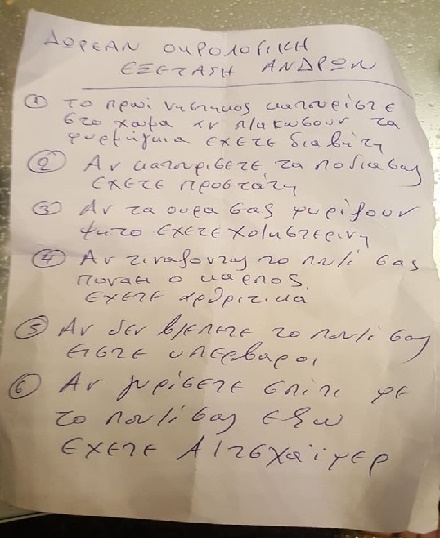 ΔΩΡΕΑΝ ΟΥΡΟΛΟΓΙΚΗ
ΕΞΕΤΑΣΗ ΑΝΔΡΩΝ
① το πρωί νηστικος κατουρίστε
στο χωμα αν πλακωσουν τα
μυρμήγκια εχετε διαβήτη
② Αν κατουρισετε τα ποδια σας
εχετε προστάτη
③ Αν τα ουρα σας μυρίζουν
ψητο εχετε χοληστερινη
④ Αν τιναζοντας το πουλί σας
πονάει ο καρπος
εχετε αρθριτικα
⑤ Αν δεν βλεπετε το πουλί σας
ειστε υπερβαροι
⑥ Αν γυρίσετε σπιτι με
το πουλί σας εξω
εχετε Αλτσχάϊμερ